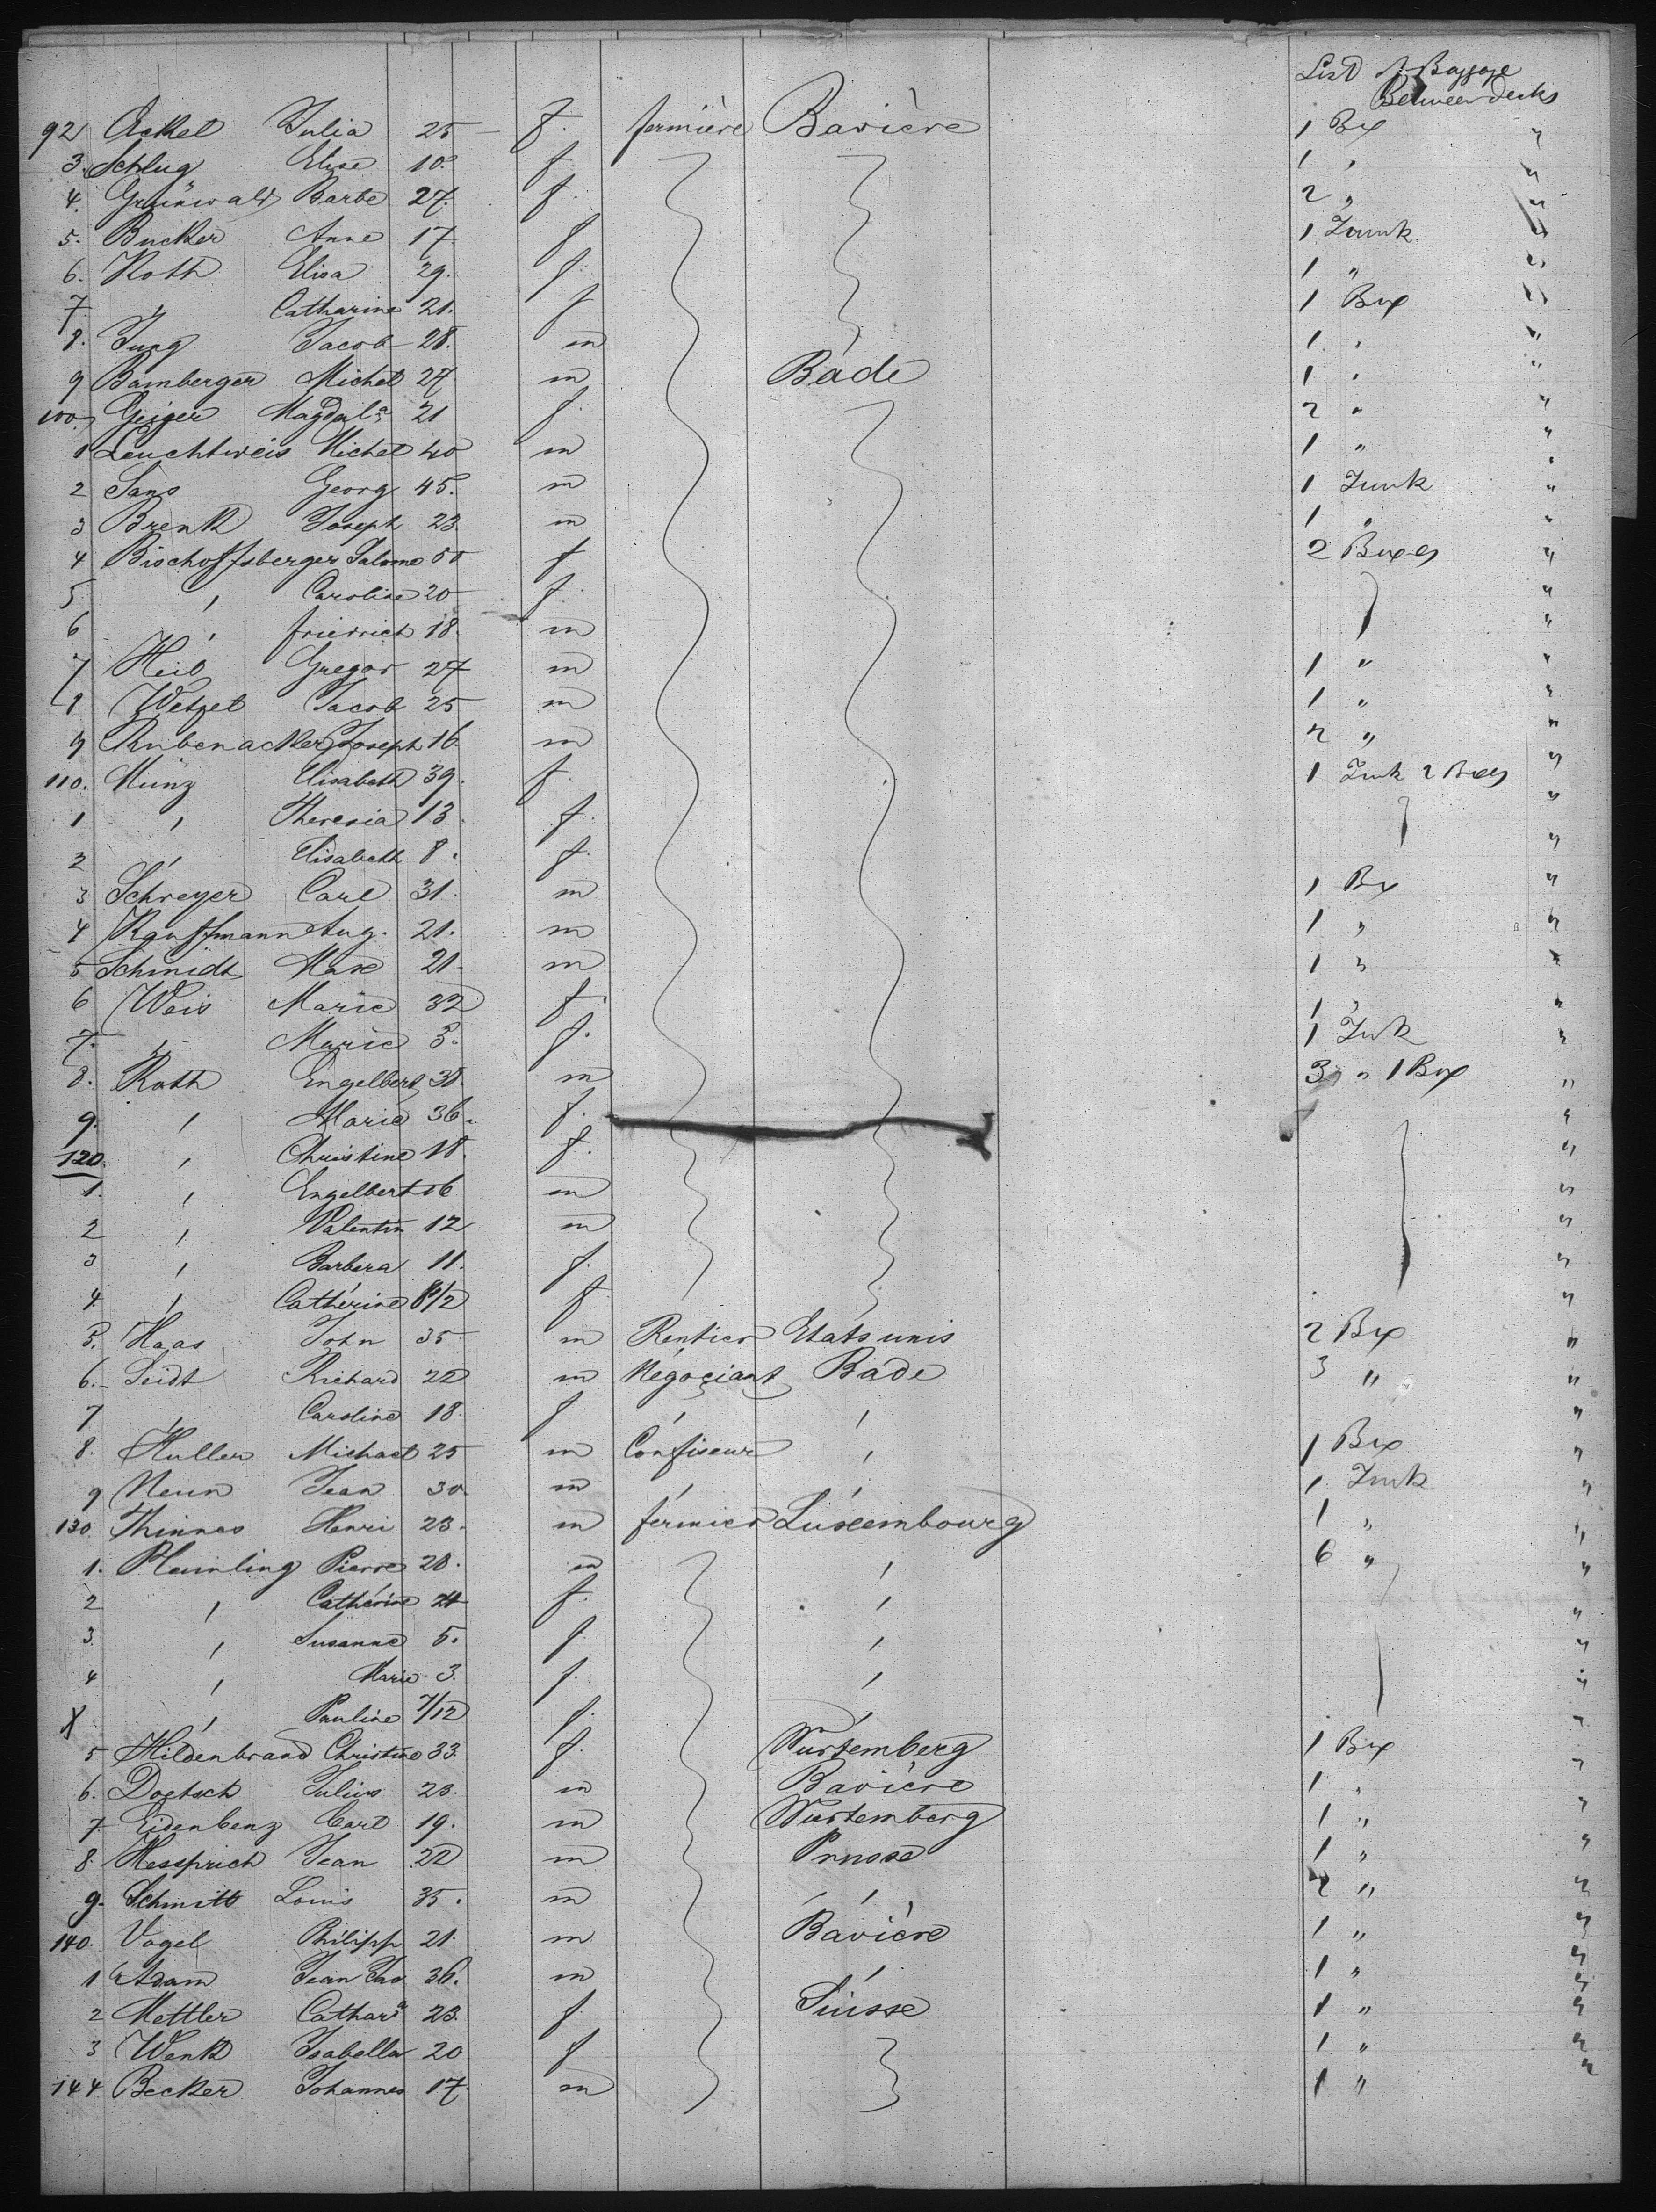 List of Baggage
Between decks
92 Ackel Julia 25 f. fermière Bavière 1 Box "
3. Schlug Elise 10. f. 1 " "
4. Grünwald Barbe 27. f. 2 " "
5. Bucker Anne 17 f 1 Trunk "
6. Roth Elisa 29. f. 1 " "
7. " Catharine 21. f 1 Box "
8. Jung Jacob 28. m 1 " "
9 Bamberger Michel 27 m Bade 1 " "
100. Geiger Magdal a 21 f. 2 " "
1 Leuchtweis Michel 40 m 1 " "
2 Sans Georg 45. m 1 Trunk "
3 Brenk Joseph 23 m 1 " "
4 Bischoffsberger Salome 50 f 2 Boxes "
5 " Caroline 20 f. "
6 " friedrich 18. m "
7 Heib Gregor 27 m 1 " "
8 Wetzel Jacob 25 m 1 " "
9 Rubenacker Joseph 16 m 2 " "
110. Münz Elisabeth 39. f. 1 Trunk 2 Boxes "
1 " Theresia 13 f. "
2 " Elisabeth 8. f. "
3 Schreyer Carl 31. m 1 Box "
4 Kauffmann Aug. 21. m 1 " "
5 Schmidt Max 21 m 1 " "
6 Weis Marie 32 f. 1 " "
7. " Marie 3. f. 1 Trunk "
8. Roth Engelbert 38. m 3 " 1 Box "
9. " Marie 36. f. "
120. " Christine 18. f. "
1. " Engelbert 16 m "
2 " Valentin 12 m "
3 " Barbera 11. f. "
4. " Catherine 8/12 f "
5. Haas John 35 m Rentier Etats unis 2 Box "
6. Seidt Richard 22 m Négociant Bade 3 " "
7 " Caroline 18. f " " "
8. Huller Michael 25 m Confiseur " 1 Box "
9 Neun Jean 30. m " " 1 Trunk "
130. Thinnes Henri 23. m fermier Luxembourg 1 " "
1. Pleimling Pierre 28. m " 6 " "
2 " Catherine 24 f. " "
3. " Susanne 5. f. " "
4 " Marie 3. f. " "
X " Pauline 7/12 f. " "
5 Hildenbrand Christine 33. f. Wurtemberg 1 Box "
6. Doetsch Julius 23. m Bavière 1 " "
7. Eidenbenz Carl 19. m Wurtemberg 1 " "
8. Hessprich Jean 22 m Prusse 1 " "
9. Schmitt Louis 35. m " 2 " "
140. Vogel Philipp 21. m Bavière 1 " "
1 Adam Jean Jac 36. m " 1 " "
2 Mettler Cathar a 23. f. Suisse 1 " "
3 Wenk Isabella 20 f 1 " "
144 Becker Johannes 17. m 1 " "